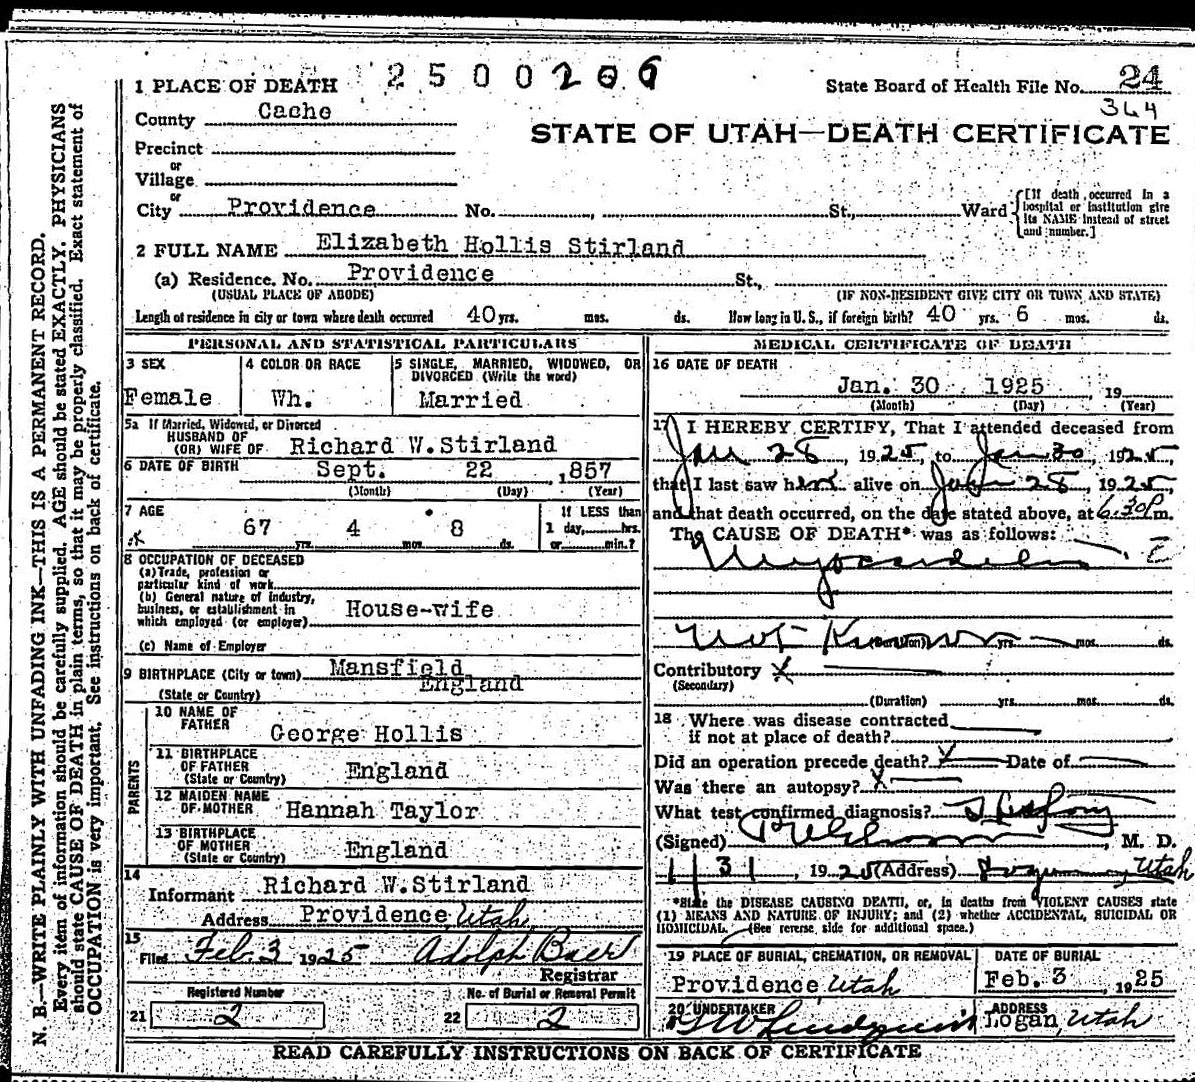 1 PLACE OF DEATH 2500206 State Board of Health File No. 24
364
County Cache
STATE OF UTAH—DEATH CERTIFICATE
Precinct
or
Village
or
City Providence No. , St., Ward
[If death occurred in a hospital or institution give its NAME instead of street and number.]
2 FULL NAME Elizabeth Hollis Stirland
(a) Residence. No. Providence St.,
(USUAL PLACE OF ABODE) (IF NON-RESIDENT GIVE CITY OR TOWN AND STATE)
Length of residence in city or town where death occurred 40 yrs. mos. ds. How long in U. S., if foreign birth? 40 yrs. 6 mos. ds.
PERSONAL AND STATISTICAL PARTICULARS
3 SEX 4 COLOR OR RACE 5 SINGLE, MARRIED, WIDOWED, OR
DIVORCED (Write the word)
Female Wh. Married
5a If Married, Widowed, or Divorced
HUSBAND OF
(OR) WIFE OF Richard W.Stirland
6 DATE OF BIRTH Sept. 22 ,1857
(Month) (Day) (Year)
7 AGE If LESS than
67 yrs. 4 mos. 8 ds. 1 day, hrs.
or min.?
8 OCCUPATION OF DECEASED
(a) Trade, profession or
particular kind of work
(b) General nature of industry,
business, or establishment in
which employed (or employer) House-wife
(c) Name of Employer
9 BIRTHPLACE (City or town) Mansfield
(State or Country) England
PARENTS
10 NAME OF
FATHER George Hollis
11 BIRTHPLACE
OF FATHER
(State or Country) England
12 MAIDEN NAME
OF MOTHER Hannah Taylor
13 BIRTHPLACE
OF MOTHER
(State or Country) England
14
Informant Richard W.Stirland
Address Providence, Utah
15
Filed Feb. 3 1925 Adolph Baer
Registrar
Registered Number No. of Burial or Removal Permit
21 2 22 2
MEDICAL CERTIFICATE OF DEATH
16 DATE OF DEATH
Jan. 30 1925 , 19
(Month) (Day) (Year)
17 I HEREBY CERTIFY, That I attended deceased from
Jan 28, 1925, to Jan 30, 1925,
that I last saw her alive on Jan 28, 1925,
and that death occurred, on the date stated above, at 6.30P m.
The CAUSE OF DEATH* was as follows:
Myocarditis
Not Known (Duration) yrs. mos. ds.
Contributory X
(Secondary)
(Duration) yrs. mos. ds.
18 Where was disease contracted
if not at place of death?
Did an operation precede death? X Date of
Was there an autopsy? X
What test confirmed diagnosis?
(Signed) , M. D.
1 31, 1925 (Address) Utah
*State the DISEASE CAUSING DEATH, or, in deaths from VIOLENT CAUSES state
(1) MEANS AND NATURE OF INJURY; and (2) whether ACCIDENTAL, SUICIDAL OR
HOMICIDAL. (See reverse side for additional space.)
19 PLACE OF BURIAL, CREMATION, OR REMOVAL DATE OF BURIAL
Providence Utah Feb. 3 , 1925
20 UNDERTAKER ADDRESS
Logan, Utah
READ CAREFULLY INSTRUCTIONS ON BACK OF CERTIFICATE
N. B.—WRITE PLAINLY WITH UNFADING INK—THIS IS A PERMANENT RECORD.
Every item of information should be carefully supplied. AGE should be stated EXACTLY. PHYSICIANS
should state CAUSE OF DEATH in plain terms, so that it may be properly classified. Exact statement of
OCCUPATION is very important. See instructions on back of certificate.